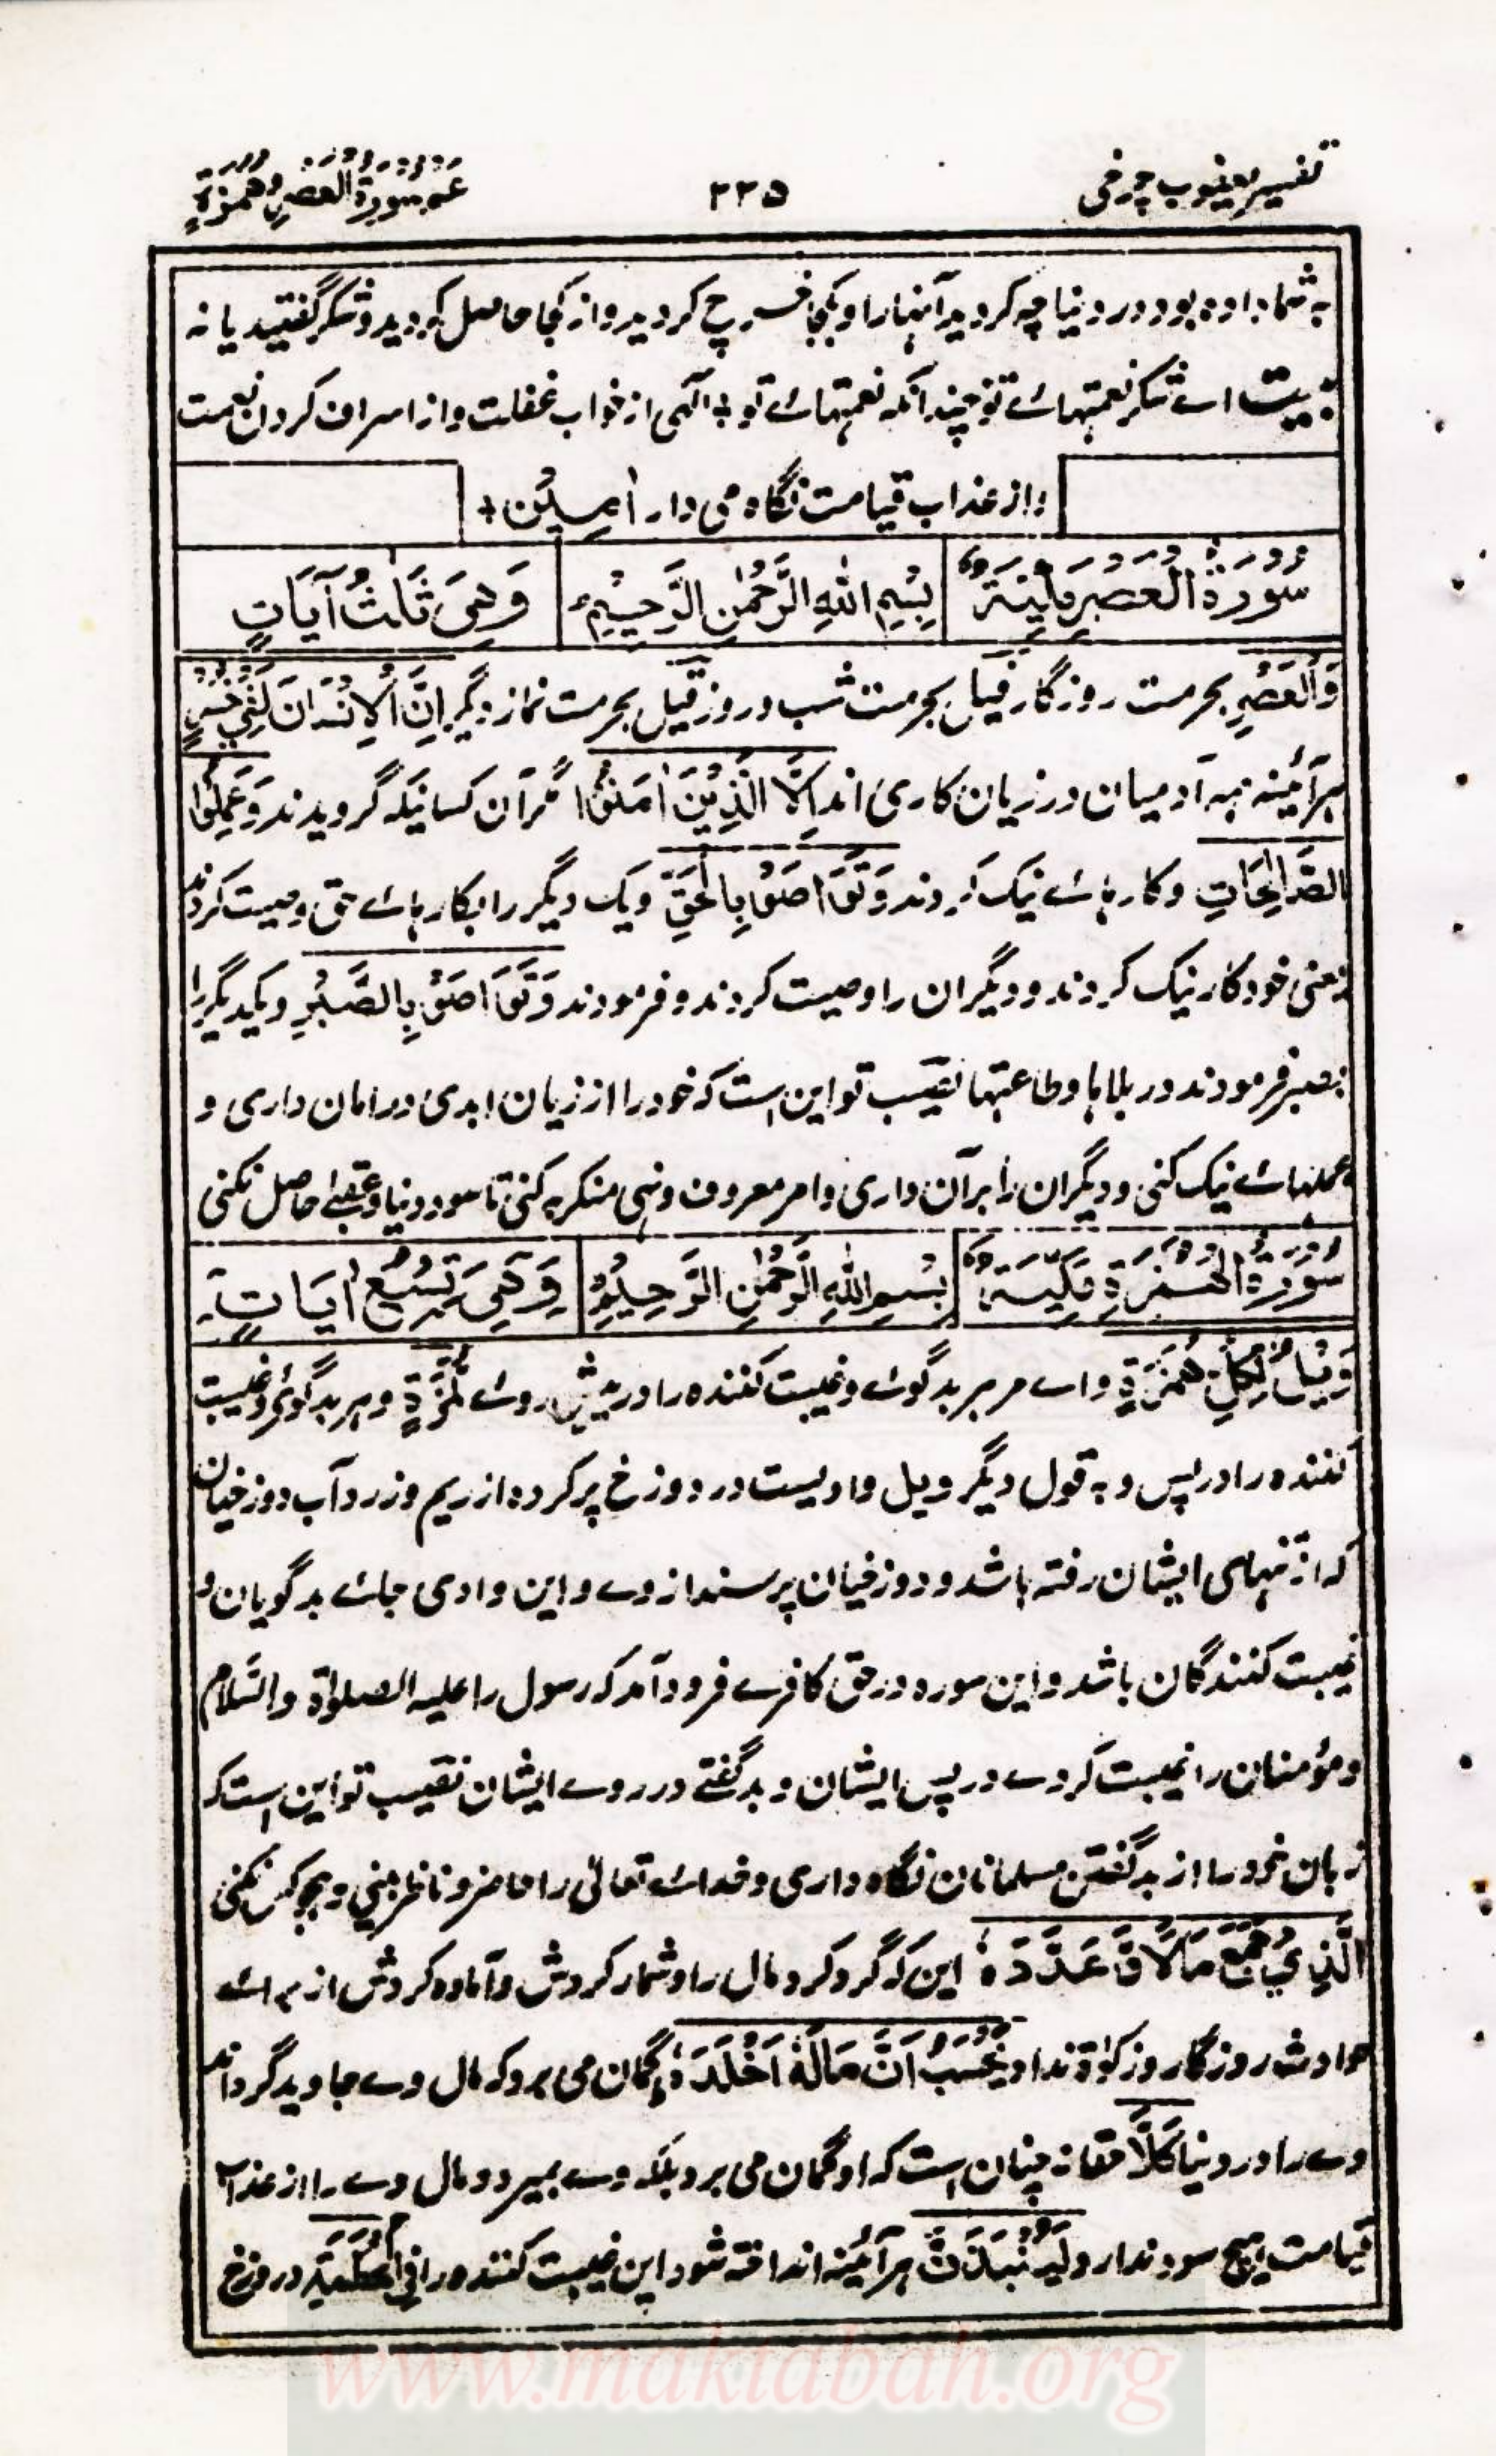 تفسیر یعقوب چرخی
۲۲۵
عم سُورَةُ الْعَصْرِ وَهُمَزَةٍ
بہ شما دادہ بود در دنیا چہ کردید آنہا را و بکجا خرچ کردید و از کجا حاصل کردید و شکر گفتید یا نہ
بیت اے شکر نعمتہاے تو چندانکہ نعمتہاے تو ؛ الٰہی از خواب غفلت و از اسراف کردن نعمت
و از عذاب قیامت نگاہ می دار اٰمِیْن +
سُورَةُ الْعَصْرِ
بِسْمِ اللهِ الرَّحْمٰنِ الرَّحِيْمِ
وَهِيَ ثَلٰثُ آيَاتٍ
وَالْعَصْرِ بحرمت روزگار قیل بحرمت شب و روز قیل بحرمت نماز دیگر اِنَّ الْاِنْسَانَ لَفِيْ خُسْرٍ
ہر آئینہ ہمہ آدمیان در زیان کاری اند اِلَّا الَّذِيْنَ اٰمَنُوْا مگر آن کسانیکہ گرویدند وَعَمِلُوا
الصَّالِحَاتِ و کارہاے نیک کردند وَتَوَاصَوْا بِالْحَقِّ و یک دیگر را بکارہاے حق وصیت کردند
یعنی خود کار نیک کردند و دیگران را وصیت کردند و فرمودند وَتَوَاصَوْ بِالصَّبْرِ و یکدیگر را
بصبر فرمودند در بلاہا و طاعتہا نقیب تو این است کہ خود را از زیان ابدی در امان داری و
عملہاے نیک کنی و دیگران را بر آن داری و امر معروف و نہی منکر بکنی تا سود دنیا و عقبےٰ حاصل کنی
سُورَةُ الْهُمَزَةِ مَكِّيَّةٌ
بِسْمِ اللهِ الرَّحْمٰنِ الرَّحِيْمِ
وَهِيَ تِسْعُ اٰيَاتٍ
وَيْلٌ لِّكُلِّ هُمَزَةٍ واے مر ہر بدگوے و غیبت کنندہ را در پیش روے لُّمَزَةٍ و ہر بدگوے و غیبت
کنندہ را در پس و بہ قول دیگر ویل وادیست در دوزخ پر کردہ از ریم و زرد آب دوزخیان
کہ از تنہای ایشان رفتہ باشد و دوزخیان پرسند از وے و این وادی جاے بدگویان و
غیبت کنندگان باشد و این سورہ در حق کافرے فرود آمد کہ رسول را علیہ الصلوٰة والسَّلام
و مؤمنان را غیبت کردے در پس ایشان و بدگفتے در روے ایشان نقیب تو این است کہ
زبان خود را از بدگفتن مسلمانان نگاہ داری و خداے تعالیٰ را حاضر و ناظر بینی و ہجو کس نکنی
الَّذِيْ جَمَعَ مَالًا وَّعَدَّدَهٗ این کہ گرد کرد مال را و شمار کردش و آمادہ کردش از براے
حوادث روزگار و زکوٰة نداد يَحْسَبُ اَنَّ مَالَهٗ اَخْلَدَهٗ گمان می برد کہ مال وے جاوید گرداند
وے را در دنیا كَلَّا حقا نہ چنان است کہ او گمان می برد بلکہ وے بمیرد و مال وے را از عذاب
قیامت ہیچ سود ندارد لَيُنْبَذَنَّ ہر آئینہ انداختہ شود این غیبت کنندہ را فِي الْحُطَمَةِ در دوزخ
www.maktabah.org